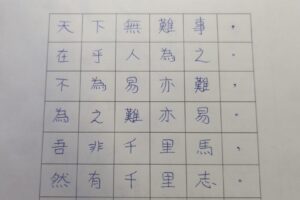 天下無難事，
在乎人為之，
不為易亦難，
為之難亦易，
吾非千里馬，
然有千里志，